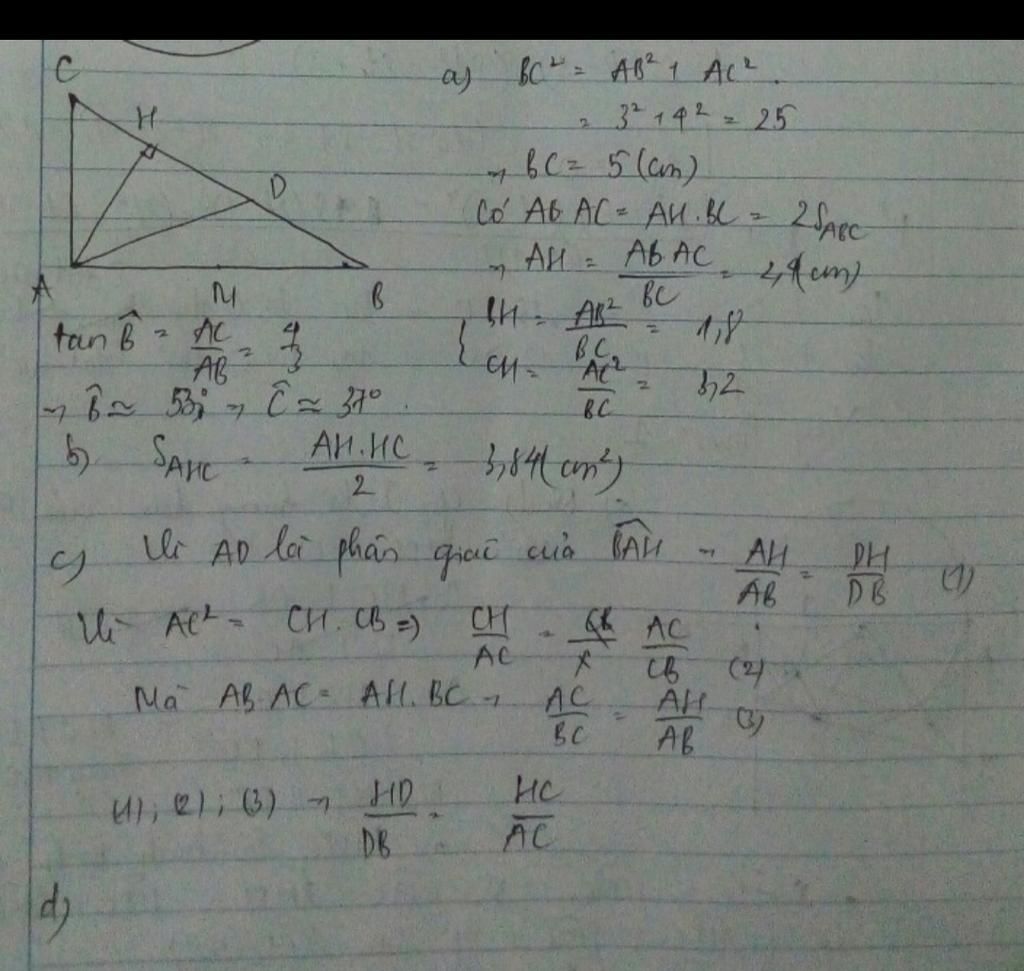 C
H
D
A
M
B
a) BC² = AB² + AC².
= 3² + 4² = 25
→ BC = 5 (cm)
Có AB.AC = AH.BC = 2S_ABC
→ AH = AB.AC / BC = 2,4 (cm)
{ BH = AB² / BC = 1,8
CH = AC² / BC = 3,2
tan B̂ = AC / AB = 4 / 3
→ B̂ ≃ 53°; → Ĉ ≃ 37°.
b) S_AHC = AH.HC / 2 = 3,84 (cm²)
c) Vì AD là phân giác của BAH → AH / AB = DH / DB (1)
Vì AC² = CH.CB => CH / AC = AC / CB (2)
Mà AB.AC = AH.BC → AC / BC = AH / AB (3)
(1); (2); (3) → HD / DB = HC / AC
d)